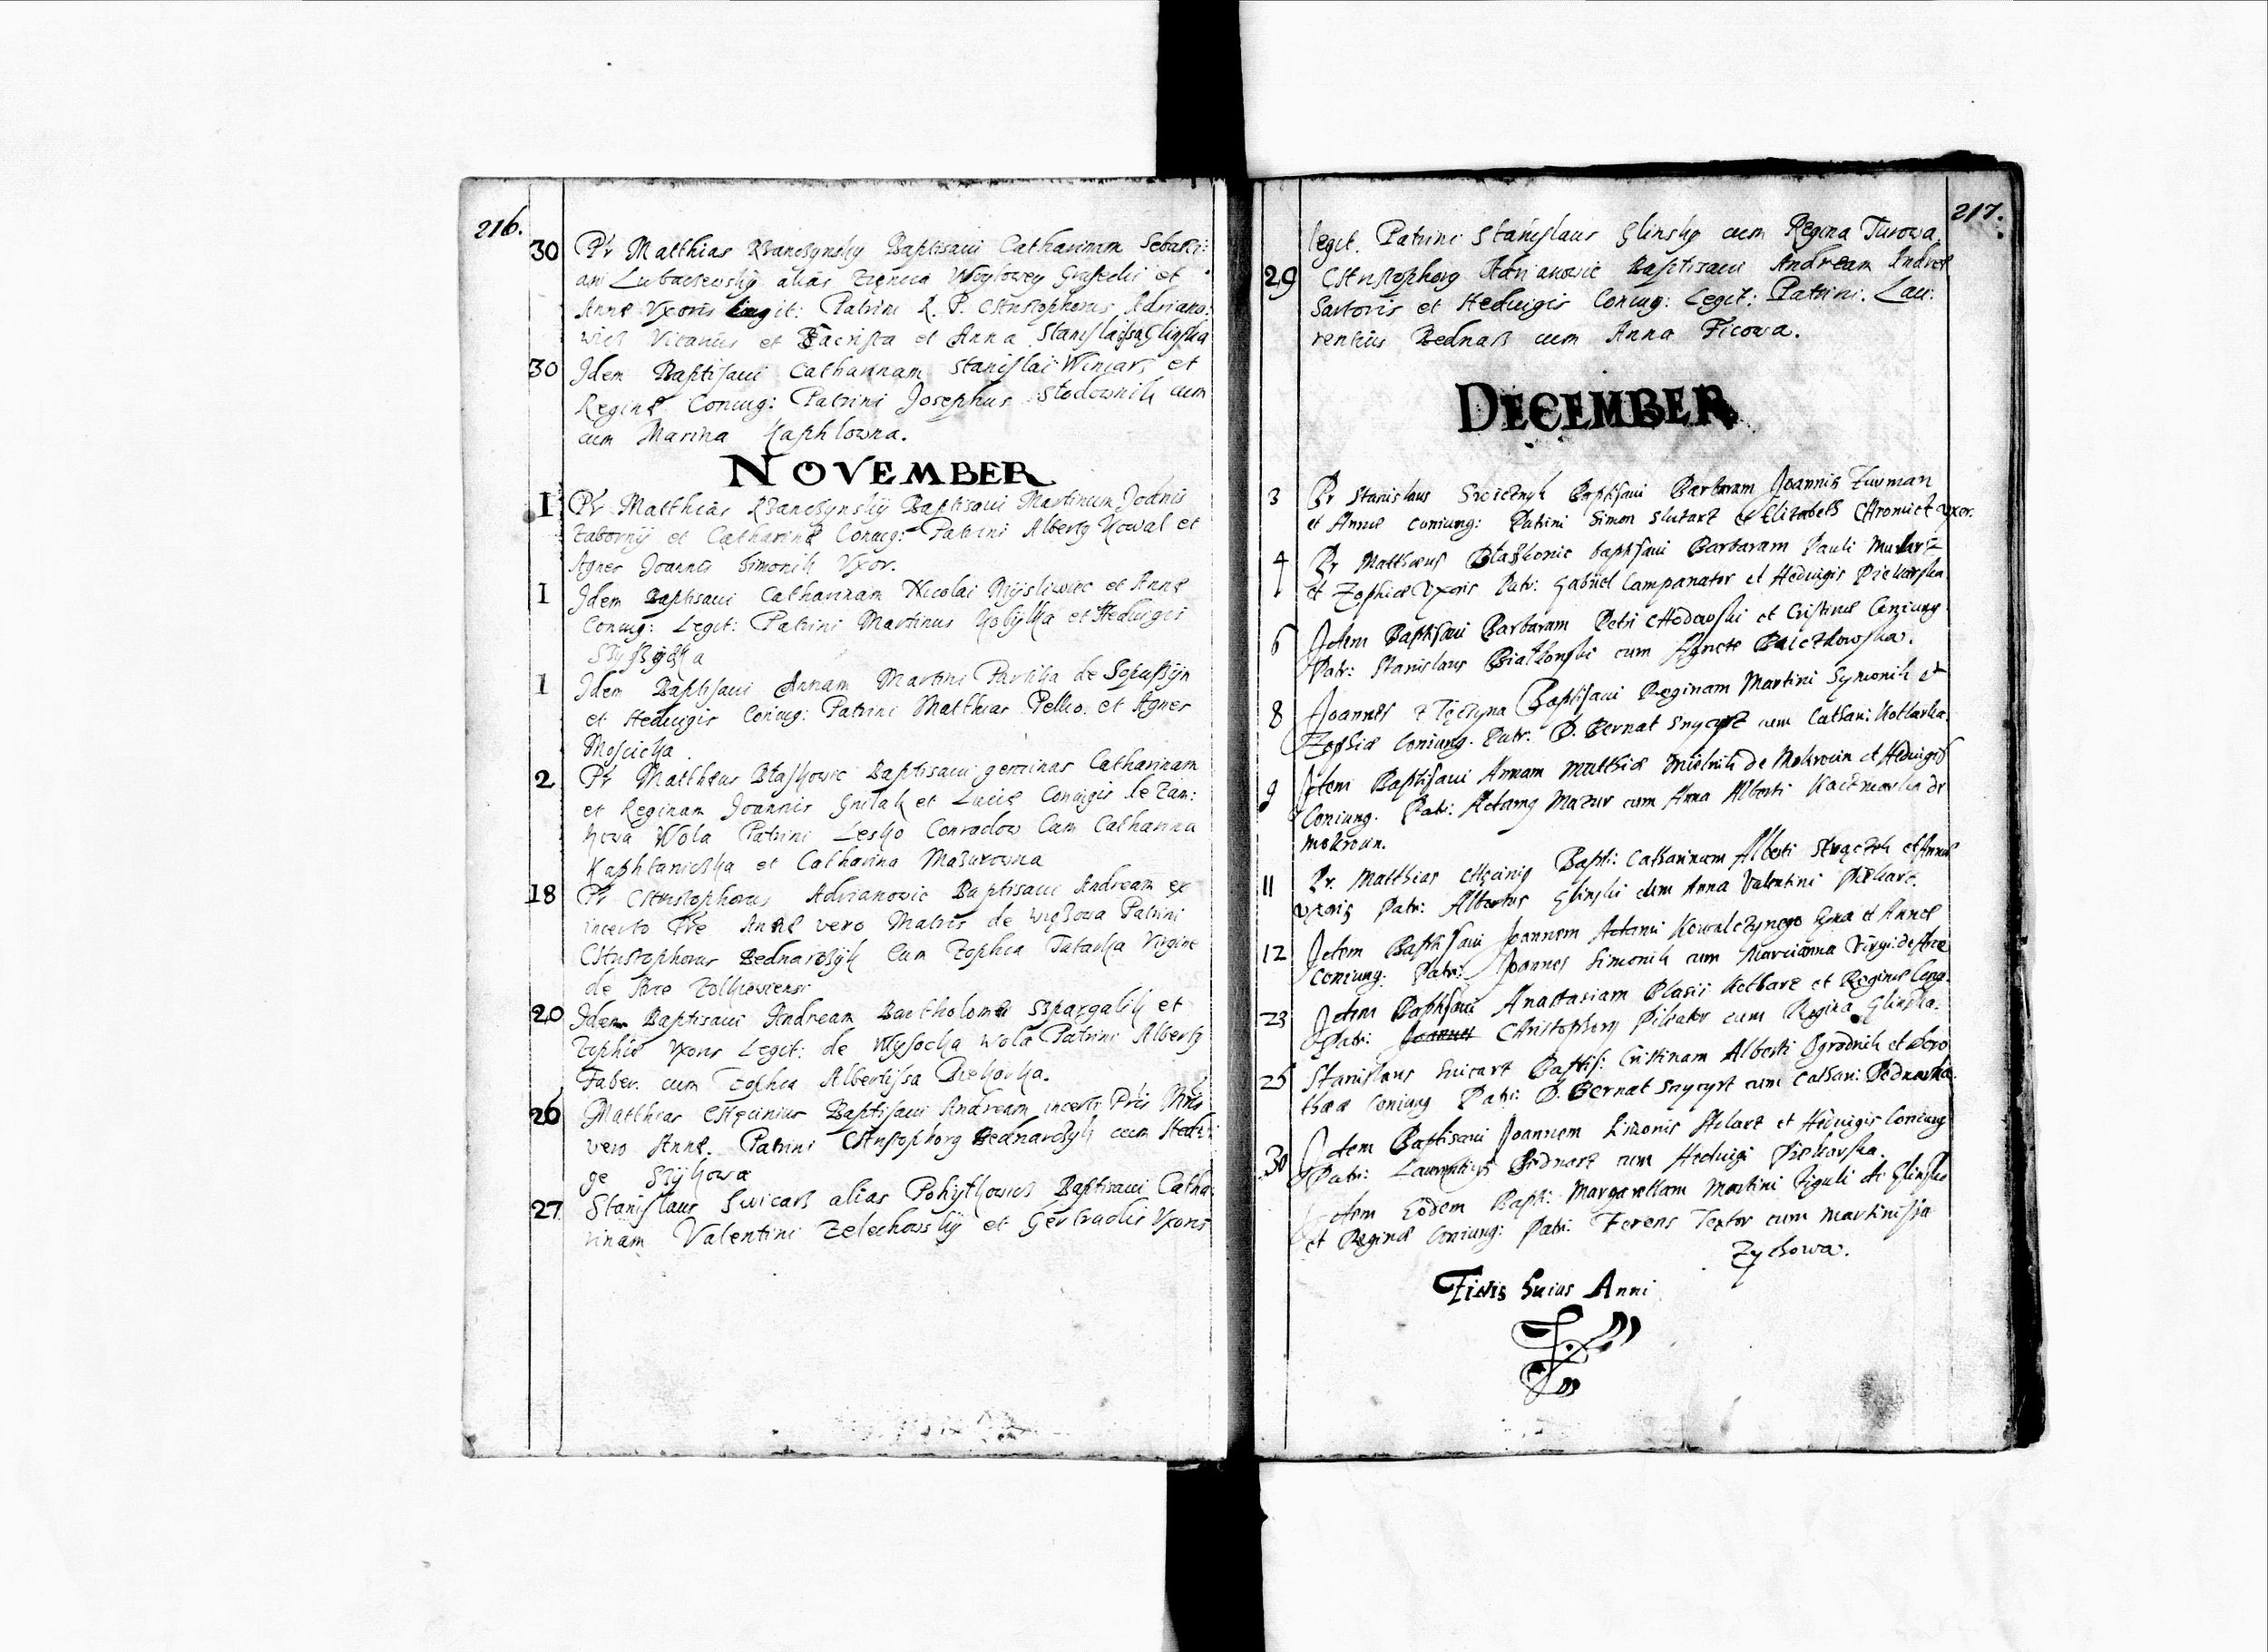 216.
30 Pr Matthias Kranczynsky Baptisaui Catharinam Sebasti:
ani Lubaczewsky alias Zięncia Woytowey Gustedis et
Annæ Vxoris legit: Patrini R. P. Christophorus Adriano:
wicz Vicarius et Sacrista et Anna Stanislaissa Glinska
30 Idem Baptisaui Catharinam Stanislai Winiarz et
Reginæ Coniug: Patrini Josephus Slodownik cum
cum Marina Kaphlowna.
NOVEMBER
1 Pr Matthias Kranczynsky Baptisaui Martinum Joãnis
Zaborny et Catharinæ Coniug: Patrini Albertg Kowal et
Agnes Joannis Simonik Vxor.
1 Idem Baptisaui Catharinam Nicolai Mysliwiec et Annæ
Coniug: Legit: Patrini Martinus Kobyłka et Heduigis
1 Idem Baptisaui Annam Martini Partyka de Sopuszyn
et Heduigis Coniug: Patrini Matthias Pelko et Agnes
Moscicka.
2 Pr Matthæus Blaskowic Baptisaui geminas Catharinam
et Reginam Joannis Gnilak et Luciæ Coniugis de Zam:
kowa Wola Patrini Lesko Conradow Cum Catharina
Kaphtaniczka et Catharina Mazurowna
18 Pr Christophorus Adrianowic Baptisaui Andream ex
incerto Pre Annæ vero Matris de Wiązowa Patrini
Christophorus Bednarczyk Cum Zophia Tatarka Virgine
de Arce Zolkieuiensi
20 Idem Baptisaui Andream Bartholomæi Szpargalik et
Zophiæ Vxoris Legit: de Wysocka Wola Patrini Albertg
Faber cum Zophia Albertissa Piekarka.
26 Matthias Chęcinius Baptisaui Andream incerti Pris Mris
vero Annæ. Patrini Christophorg Bednarczyk cum Hedui
ge Szykowa
27 Stanislaus Swicarz alias Pohytkowicz Baptisaui Catha
rinam Valentini Zelechowsky et Gertrudis Vxoris
217.
legit. Patrini Stanislaus Glinsky cum Regina Turowa.
29 Christophorg Adrianowic Baptisaui Andream Andreæ
Sartoris et Heduigis Coniug: Legit: Patrini. Lau:
rentius Bednarz cum Anna Ficowa.
DECEMBER
3 Pr Stanislaus Baptisaui Barbaram Joannis Furman
et Annæ Coniung: Patrini Simon Slusarz et Elizabeth Chroniczka Vxor.
4 Pr Matthæus Blaszkowic baptisaui Barbaram Pauli Mularz
et Zophiæ Vxoris Patr: Gabriel Campanator et Heduigis Piekarska.
6 Idem Baptisaui Barbaram Petri Chodowski et Cristinæ Coniung.
Patr: Stanislaus Białkowski cum Agnete
8 Joannes z Tęczyna Baptisaui Reginam Martini Symonik et
Zophiæ Coniung. Patr: D. Bernat Snycyrz cum Cathari: Kotlarka.
9 Idem Baptisaui Annam Matthiæ Mielnik de Mokrotin et Heduigis
Coniung. Patr: Adamg Mazur cum Anna Alberti Kaczmarka de
Mokrotin.
11 Pr. Matthias Chęcinig Bapti: Catharinam Alberti et Annæ
Vxoris Patr: Albertus Glinski cum Anna Valentini Piekarz.
12 Idem Baptisaui Joannem Adami Kowalczynego Syna et Annæ
Coniung: Patr: Joannes Simonik cum Marcianna Virgi: de Arce
23 Idem Baptisaui Anastasiam Blasii Kotlarz et Reginæ Coniu.
Patr: Joannes Christophorg Pileator cum Regina Glinska.
25 Stanislaus Suicarz Baptis: Cristinam Alberti Ogrodnik et Doro
theæ Coniung Patr: D. Bernat Snycyrz cum Cathari: Bednarka.
30 Idem Baptisaui Joannem Simonis et Heduigis Coniung
Patr: Laurentius Bednarz cum Heduigi Piekarska.
Idem Eodem Bapti: Margaretham Martini Figuli de Glinsko
et Reginæ Coniung: Patr: Ferens Textor cum Martinissa
Zychowa.
Finis huius Anni